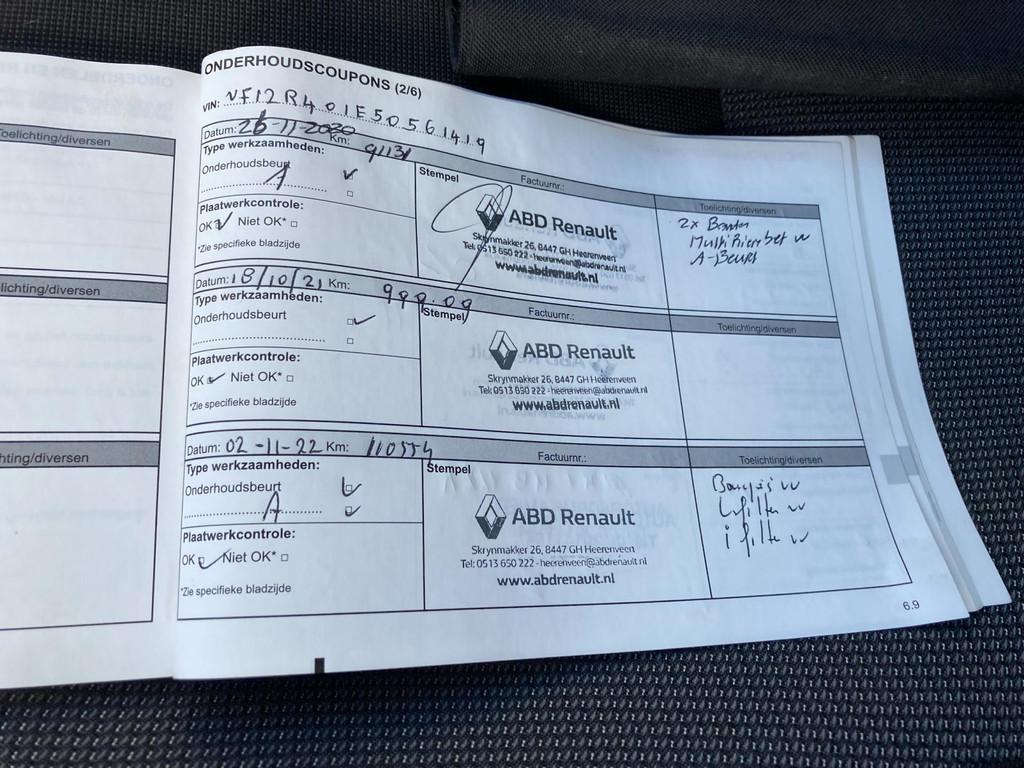 ONDERHOUDSCOUPONS (2/6)
VIN: VF12R401E50561419
Toelichting/diversen
Datum: 26-11-2020 Km: 91131
Type werkzaamheden:
Onderhoudsbeurt
A
Plaatwerkcontrole:
OK Niet OK*
*Zie specifieke bladzijde
Stempel
Factuurnr.:
ABD Renault
Skrynmakker 26, 8447 GH Heerenveen
Tel: 0513 650 222 - heerenveen@abdrenault.nl
www.abdrenault.nl
Toelichting/diversen
2x Banden
Multi Riem bet vv
A-Beurt
lichting/diversen
Datum: 18/10/21 Km: 999.09
Type werkzaamheden:
Onderhoudsbeurt
Plaatwerkcontrole:
OK Niet OK*
*Zie specifieke bladzijde
Stempel
Factuurnr.:
ABD Renault
Skrynmakker 26, 8447 GH Heerenveen
Tel: 0513 650 222 - heerenveen@abdrenault.nl
www.abdrenault.nl
Toelichting/diversen
hting/diversen
Datum: 02-11-22 Km: 110554
Type werkzaamheden:
Onderhoudsbeurt
A
Plaatwerkcontrole:
OK Niet OK*
*Zie specifieke bladzijde
Stempel
Factuurnr.:
ABD Renault
Skrynmakker 26, 8447 GH Heerenveen
Tel: 0513 650 222 - heerenveen@abdrenault.nl
www.abdrenault.nl
Toelichting/diversen
Bougis vv
L filter vv
i filter vv
6.9